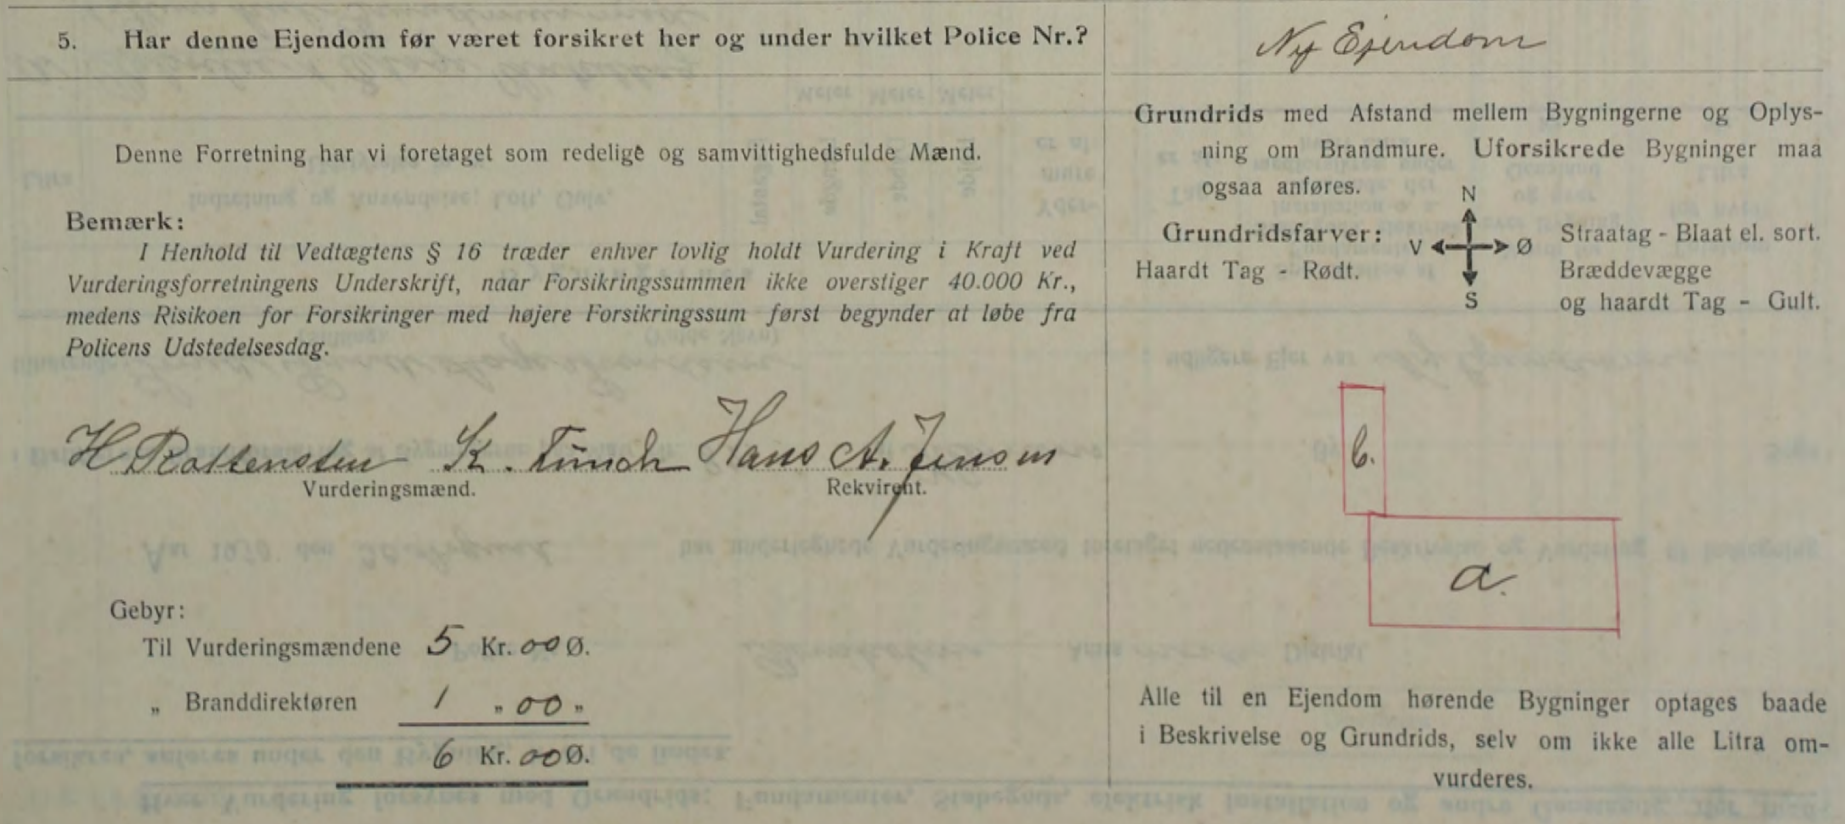 5. Har denne Ejendom før været forsikret her og under hvilket Police Nr.?
Ny Ejendom
Denne Forretning har vi foretaget som redelige og samvittighedsfulde Mænd.
Bemærk:
I Henhold til Vedtægtens § 16 træder enhver lovlig holdt Vurdering i Kraft ved
Vurderingsforretningens Underskrift, naar Forsikringssummen ikke overstiger 40.000 Kr.,
medens Risikoen for Forsikringer med højere Forsikringssum først begynder at løbe fra
Policens Udstedelsesdag.
H. Rottensten K. Funch Hans A. Jensen
Vurderingsmænd. Rekvirent.
Gebyr:
Til Vurderingsmændene 5 Kr. 00 Ø.
„ Branddirektøren 1 „ 00 „
6 Kr. 00 Ø.
Grundrids med Afstand mellem Bygningerne og Oplys-
ning om Brandmure. Uforsikrede Bygninger maa
ogsaa anføres.
Grundridsfarver:
Haardt Tag - Rødt.
N
V Ø
S
Straatag - Blaat el. sort.
Bræddevægge
og haardt Tag - Gult.
b.
a.
Alle til en Ejendom hørende Bygninger optages baade
i Beskrivelse og Grundrids, selv om ikke alle Litra om-
vurderes.